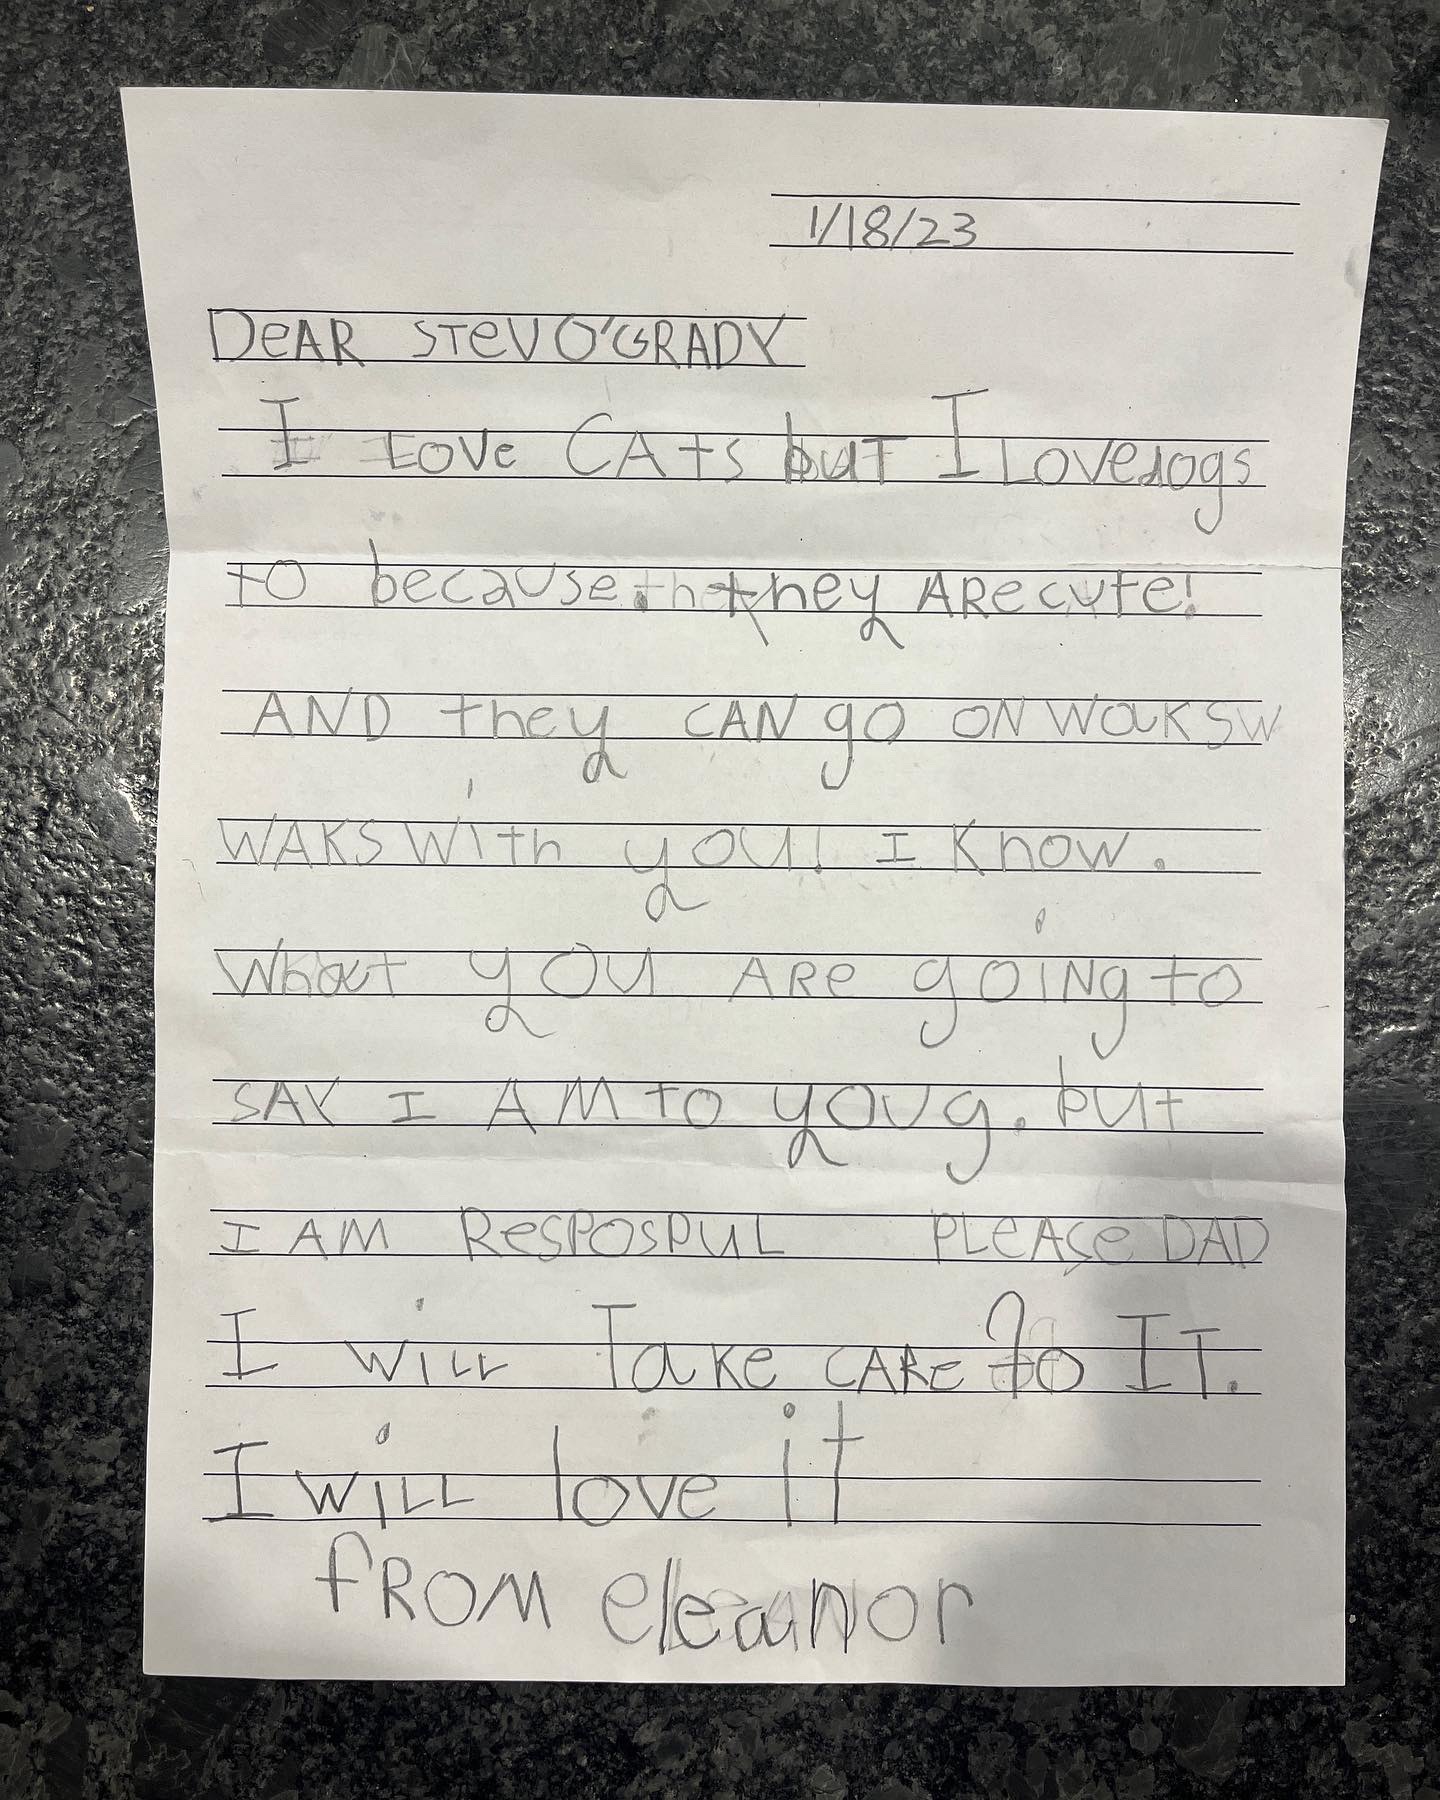 1/18/23
DeAR STeV O'GRADY
I LOVe CAts but I LOVe dogs
tO because they ARe cute!
AND they CAN go ON WakS W
WAKS With you! I Know.
What yOU ARe goiNg to
SAY I AM to youg. but
I AM ResposPUL PLeASe DAD
I wiLL Take CARe to IT.
I wiLL love it
fROM eleanor